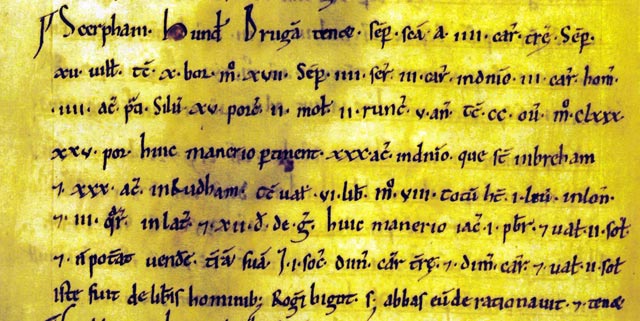 Scerpham. hund' Druga tenet semp. sca. a. iiii car' træ. Semp.
xii. uill. tc. x. bor. m. xvii. Semp. iiii. ser'. iii. car'. indnio. iii. car' hom'.
iiii. ac' pti. Silu xv porc'. ii. mol'. ii. runc'. v. an'. tc. cc. ou'. m. clxxx.
xxv. por. huic manerio ptinent. xxx. ac'. indnio. que st inbreham
7. xxx. ac'. in tudham. tc ual'. vi. lib'. m. viii. totu ht. i. leu. inlon'.
7. iii. qr'. in lat'. 7. xii. d. de. g'. huic manerio iac'. i. pbr'. 7 ual'. ii. sol'
7. n potat uende tra sua. i. soc'. dim. car' træ. 7. dim. car'. 7. ual. ii. sol'
iste fuit de libis hominib; Rog' bigot. s; abbas eu derationauit. 7 tenet